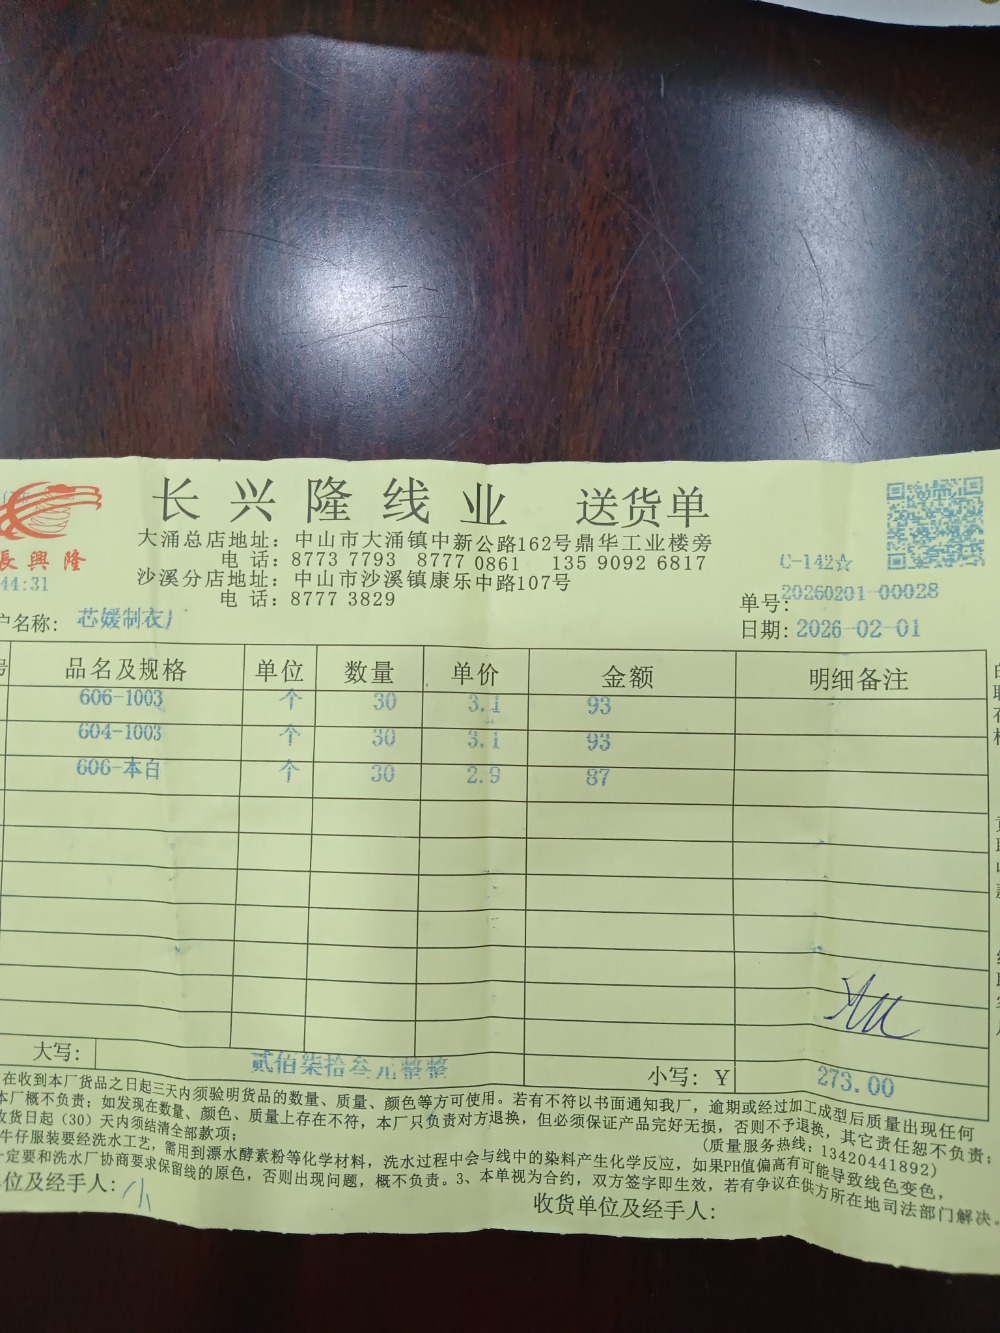 长兴隆线业 送货单
大涌总店地址：中山市大涌镇中新公路162号鼎华工业楼旁
电 话：8773 7793 8777 0861 135 9092 6817
沙溪分店地址：中山市沙溪镇康乐中路107号
电 话：8777 3829
長興隆
44:31
C-142☆
单号：20260201-00028
户名称：芯媛制衣厂
日期：2026-02-01
号 品名及规格 单位 数量 单价 金额 明细备注
606-1003 个 30 3.1 93
604-1003 个 30 3.1 93
606-本白 个 30 2.9 87
大写：贰佰柒拾叁元整整 小写：Y 273.00
在收到本厂货品之日起三天内须验明货品的数量、质量、颜色等方可使用。若有不符以书面通知我厂，逾期或经过加工成型后质量出现任何
本厂概不负责；如发现在数量、颜色、质量上存在不符，本厂只负责对方退换，但必须保证产品完好无损，否则不予退换，其它责任恕不负责；
收货日起（30）天内须结清全部款项； （质量服务热线：13420441892）
牛仔服装要经洗水工艺，需用到漂水酵素粉等化学材料，洗水过程中会与线中的染料产生化学反应，如果PH值偏高有可能导致线色变色，
一定要和洗水厂协商要求保留线的原色，否则出现问题，概不负责。3、本单视为合约，双方签字即生效，若有争议在供方所在地司法部门解决。
单位及经手人：小 收货单位及经手人：